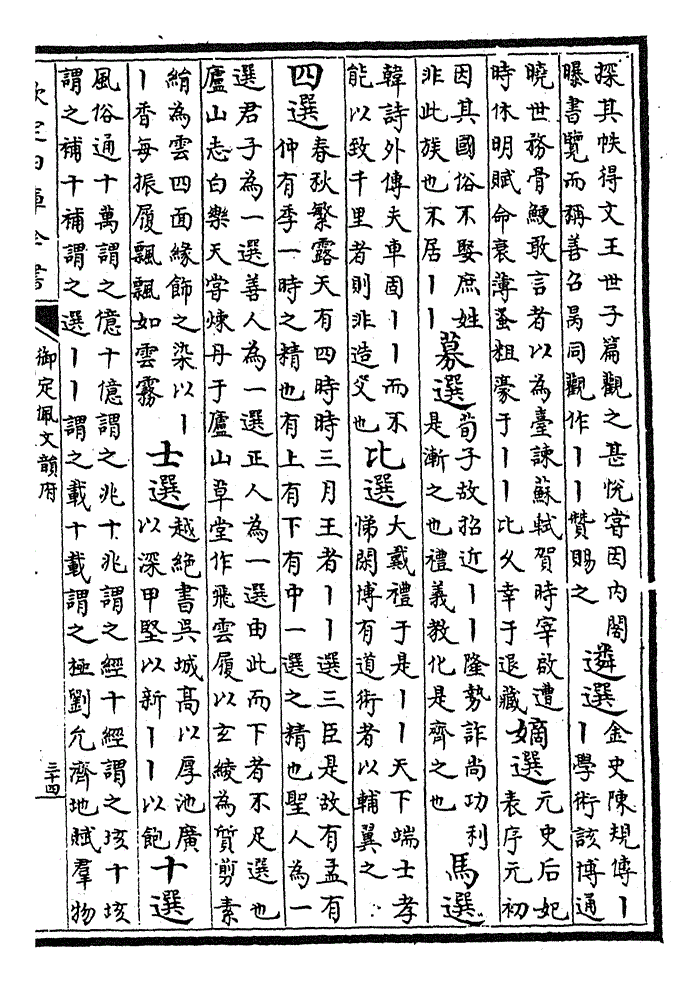 探其帙得文王世子篇觀之甚悅嘗因内閣
曝書覽而稱善召昺同觀作丨丨贊賜之
遴選
金史陳規傳丨
丨學術該博通
曉世務骨鯁敢言者以為臺諫蘇軾賀時宰啟遭
時休明賦命衰薄蚤粗豪于丨丨比久幸于退藏
嫡選
元史后妃
表序元初
因其國俗不娶庶姓
非此族也不居丨丨
募選
荀子故招近丨丨隆勢詐尚功利
是漸之也禮義教化是齊之也
馬選
韓詩外傳夫車固丨丨而不
能以致千里者則非造父也
比選
大戴禮于是丨丨天下端士孝
悌閎博有道術者以輔翼之
四選
春秋繁露天有四時時三月王者丨丨選三臣是故有孟有
仲有季一時之精也有上有下有中一選之精也聖人為一
選君子為一選善人為一選正人為一選由此而下者不足選也
廬山志白樂天嘗煉丹于廬山草堂作飛雲履以玄綾為質剪素
綃為雲四面緣飾之染以丨
丨香每振履飄飄如雲霧
士選
越絶書吳城高以厚池廣
以深甲堅以新丨丨以飽
十選
風俗通十萬謂之億十億謂之兆十兆謂之經十經謂之垓十垓
謂之補十補謂之選丨丨謂之載十載謂之極劉允濟地賦羣物
欽定四庫全書
御定佩文韻府
三十四